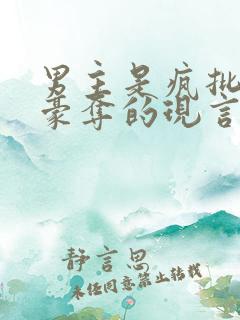 男主是疯批
豪夺的现言
静言思
未经同意禁止转载